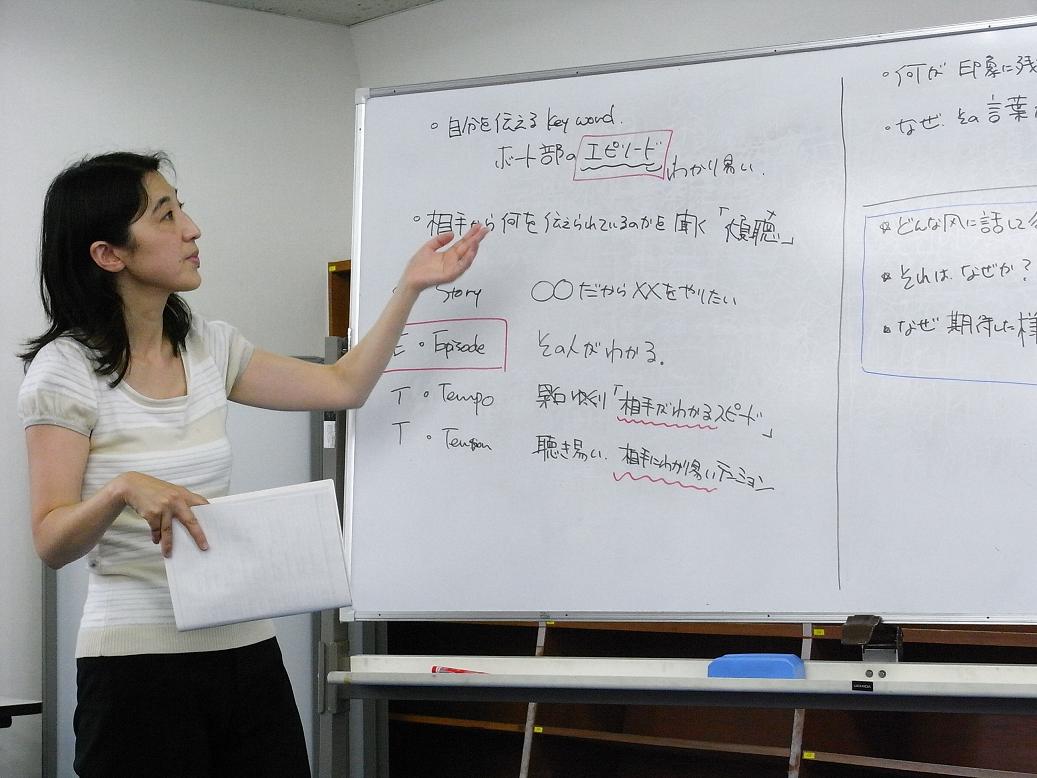 ・自分を伝える key word.
ボート部の エピソード わかり易い.
・相手から何を伝えられているのかを聞く「傾聴」
Story ○○だから××をやりたい
E・Episode その人がわかる。
T・Tempo ゆっくり「相手がわかるスピード」
T・Tension 聴き易い. 相手にわかり易いテンション
・何が 印象に残
・なぜ. その言葉
☆どんな風に話して
☆それは、なぜか?
・なぜ 期待した様
UCHIDA